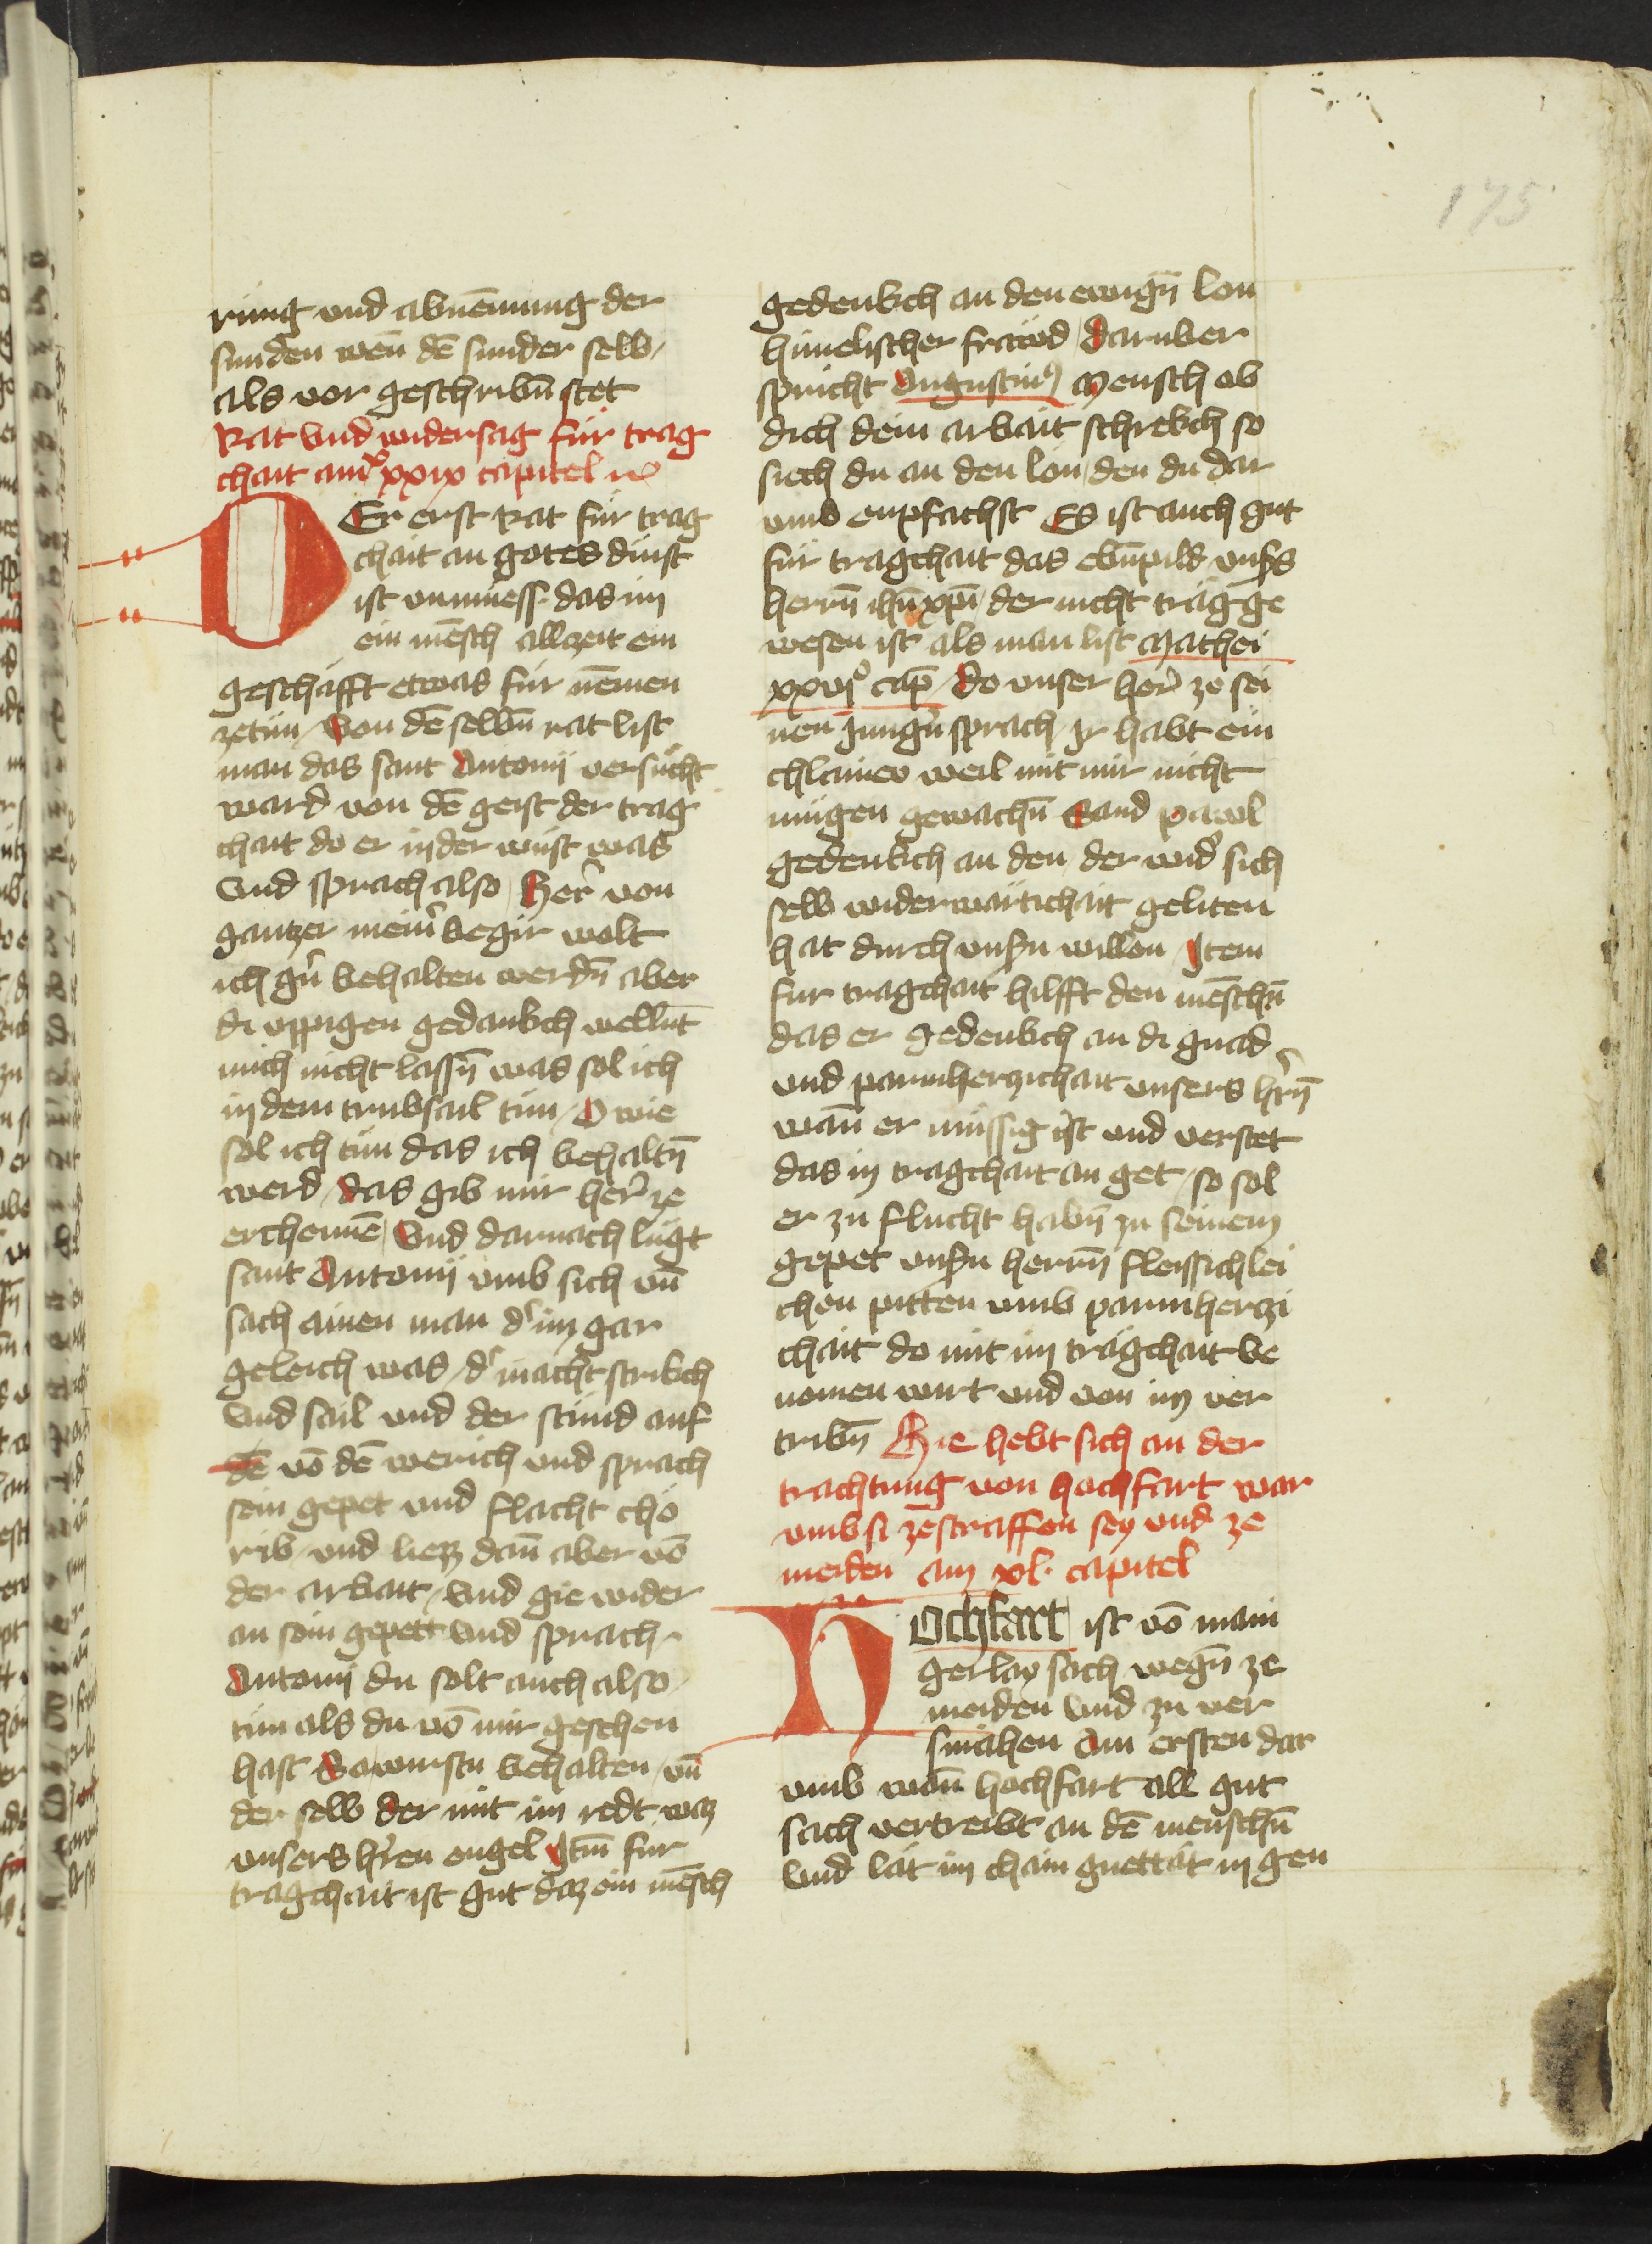 175
rung vnd abnēmung der
sunden wen̄ dē sunder selb /
als vor geschribn̄ stet
Rat vnd widersag fur trag
chait am xxxix capitel
DEr erst Rat fur trag
chait an gotes dinst
ist vnmuess das im
ein mēsch allzeit ein
geschäfft etwas fur nēmen
zetun / Von dē selbn̄ rat list
man das sant Antonij versucht
ward von dē geist der trag
chait do er in der wüst was
Vnd sprach also / Her̄ von
gantzer meiner begir wolt
ich gn̄ behalten werdn̄ aber
di vppigen gedankch wellnt
mich nicht lassn̄ was sol ich
in dem trubsail tun / O wie
sol ich tun das ich behaltn̄
werd / das gib mir her̄ ze
erchennē / Vnd darnach lugt
sant Antonij vmb sich vn̄
sach ainen man dʼ im gar
geleich was / dʼ macht strikch
Vnd sail vnd der stund auf
dē vō dē werich vnd sprach
sein gepet vnd flacht chö
rib / vnd liezz dan̄ aber vō
der arbait / vnd gie wider
an sein gepett Vnd sprach
Antonij du solt auch also
tun als du vō mir gesehen
hast So wirstu behalten / vn̄
der selb der mit im redt waz
vnsers hʼren engel Itm̄ fur
tragchait ist gut daz ein mēsch
gedenkch an den ewign̄ lon
himelischer fräwd / daruber
spricht Augustinus Mensch ob
dich dein arbait schrekch so
siech du an den lön / den du dar
vmb enpfachst Es ist auch gut
für tragchait das ebn̄pild vnsʼs
herrn̄ ihū xpī / der nicht träg ge
wesen ist als man list Mathei
xxvjo cap̄ / Do vnser her̄ ze sei
nen jungʼn sprach / Ir habt ein
chlainew weil mit mir nicht
mugen gewachn̄ Sand pawl
gedenkch an den der widʼ sich
selb widerwärtichait geliten
hat durch vnsʼn willen Item
fur tragchait hilfft den mēschn̄
das er gedenkch an di gnad
vnd parmherzichait vnsers hʼrn̄
wan̄ er müssig ist vnd verstet
das in tragchait an get / so sol
er zu flucht habn̄ zu seinem
gepet vnsʼn herrn̄ fleissichlei
chen pitten vmb parmherczi
chait do mit im trägchait be
nomen wirt vnd von im ver
tribn̄ Hie hebt sich an der
trachtung von hochfart war
vmb si zestraffen sey vnd ze
meiden am xl. capitel
HOchfart ist vō mani
gerlay sach wegn̄ ze
meiden Vnd zu ver
smähen Am ersten dar
vmb wan̄ hochfart all gut
sach vertreibt an dē menschn̄
Vnd lät im chain guettät in gen